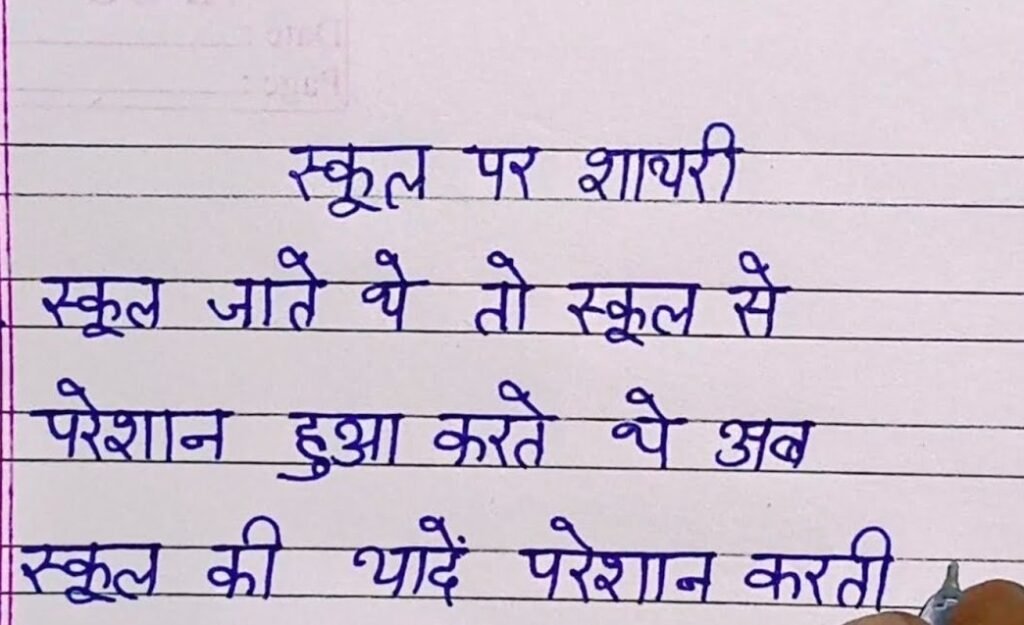 Date :
Page :
स्कूल पर शायरी
स्कूल जाते थे तो स्कूल से
परेशान हुआ करते थे अब
स्कूल की यादें परेशान करती